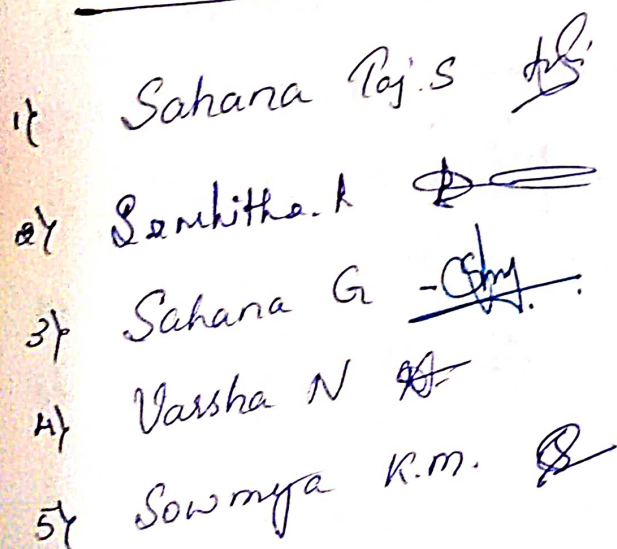 1) Sahana Taj.S
2) Samhitha.R
3) Sahana G
4) Varsha N
5) Sowmya K.M.